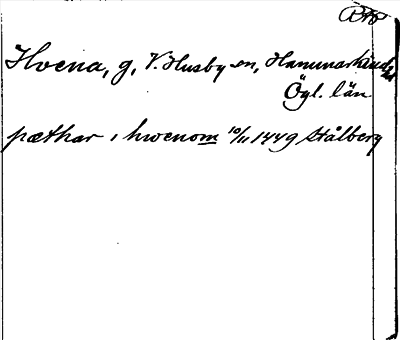 Hvena, g, V. Husby sn, Hammarkinds
Ögl. län
pæthar i hwenom 10/11 1449 Stålberg